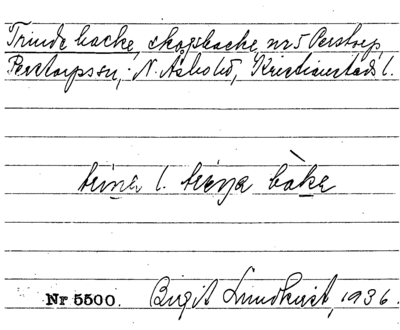 Trinde backe, skogsbacke, nr 5 Perstorp,
Perstorps sn, N. Åsbo hd, Kristianstads l.
trina l. bàka
Nr 5500. Birgit Lundkvist, 1936.